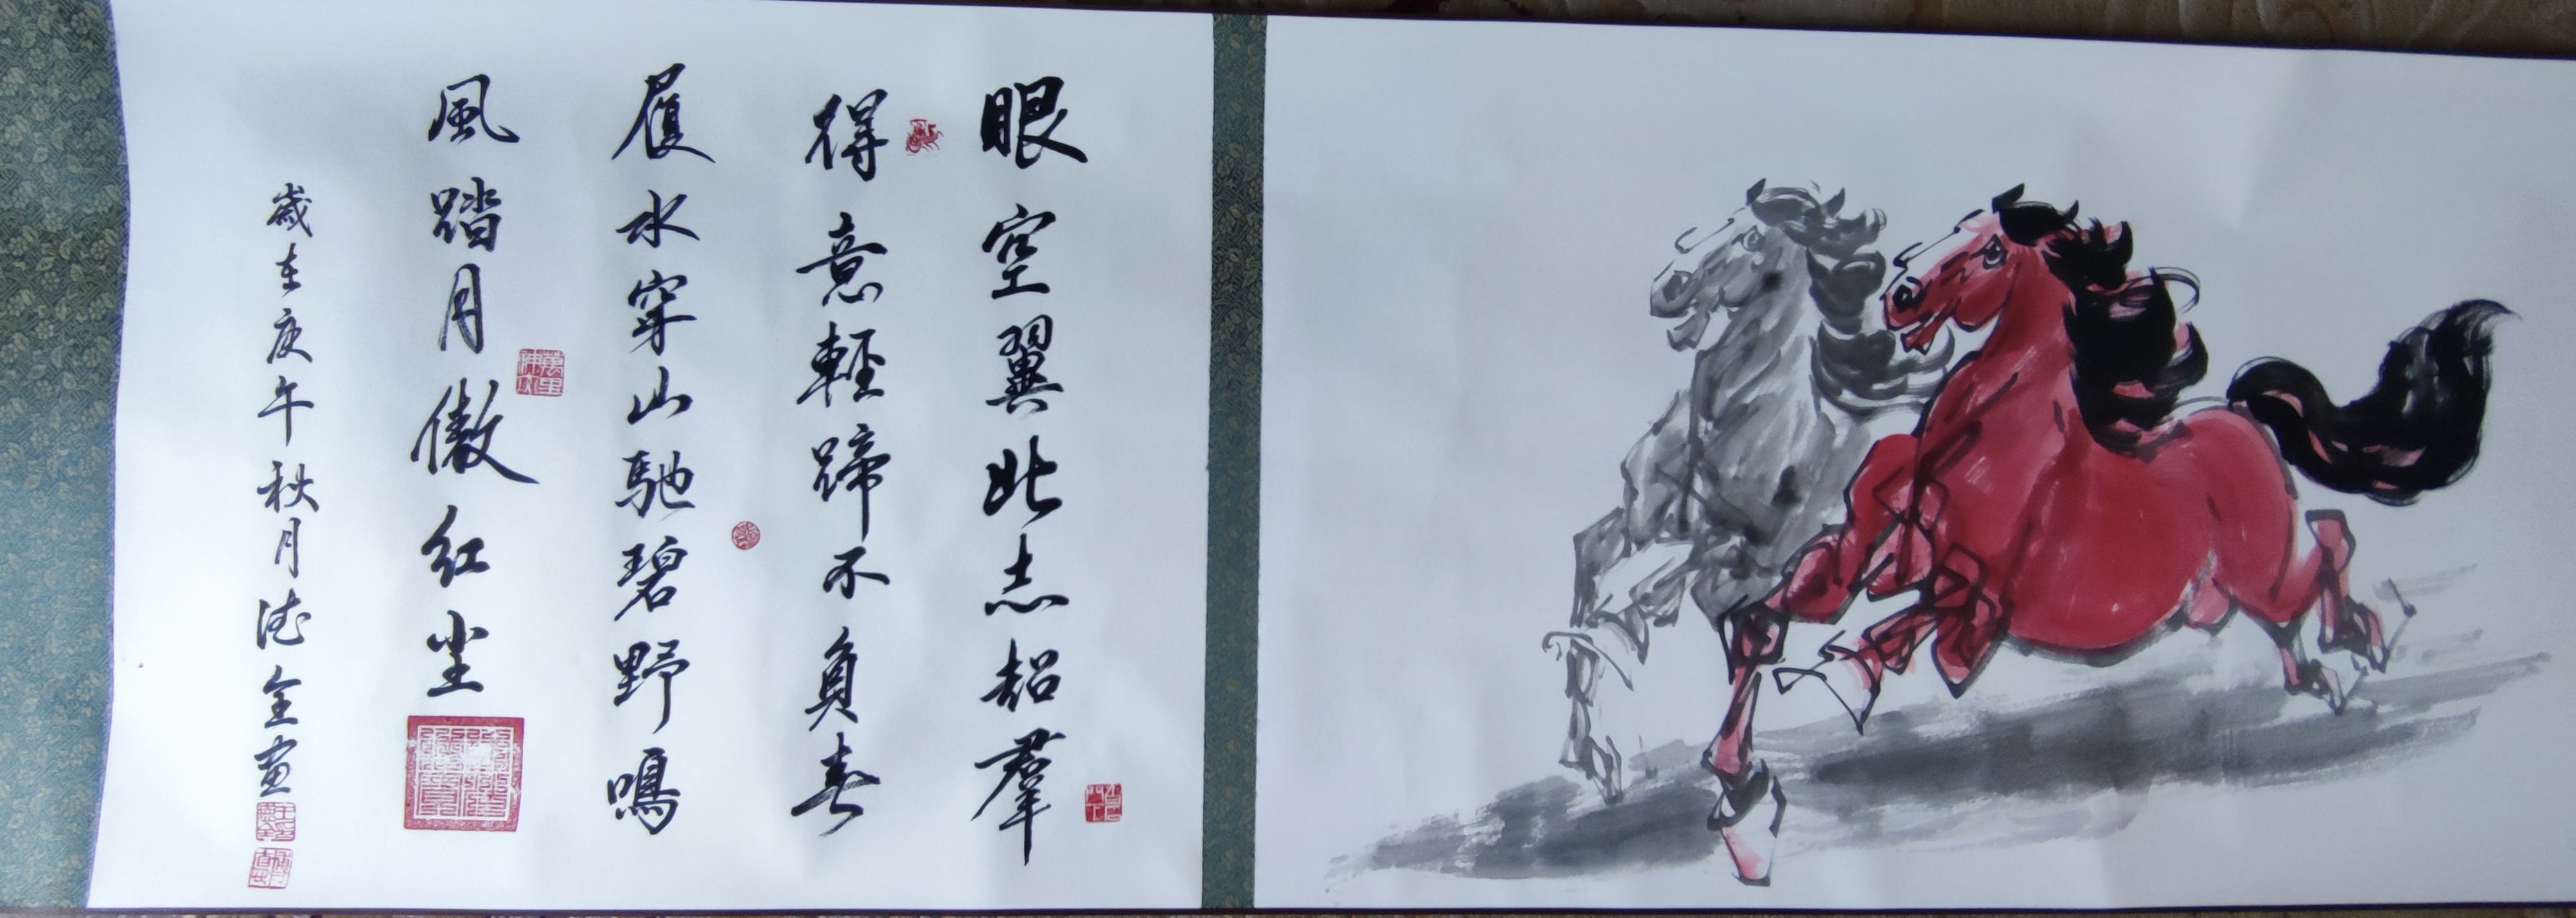 眼空翼北志超羣
得意輕蹄不負春
履水穿山馳碧野鳴
風踏月傲红尘
歲在庚午秋月德全畫